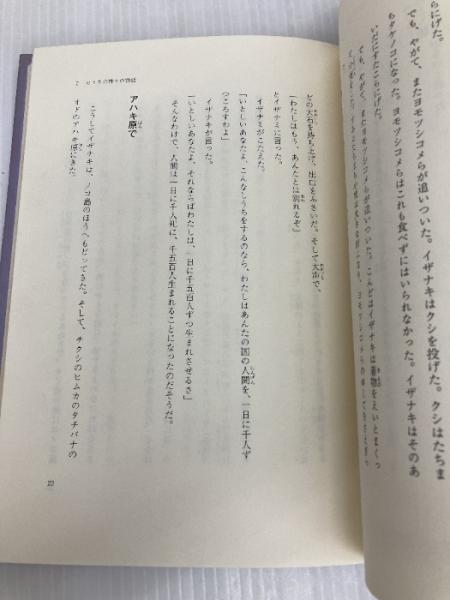 らにげた。
でも、やがて、またヨモツシコメらが追いついた。イザナキはクシを投げた。クシはたちま
ちタケノコになった。ヨモツシコメらはこれも食べずにはいられなかった。イザナキはそのあ
いだにすたこらにげた。
でも、やがて、またヨモツシコメらが追いついた。こんどはイザナキは着物をえいとまくっ
どの大石を持ち上げ、出口をふさいだ。そして大声で、
「わたしはもう、あんたとは別れるぞ」
とイザナミに言った。
イザナミがこたえた。
「いとしいあなたよ、こんなしうちをするのなら、わたしはあんたの国の人間を、一日に千人ず
つころすわよ」
イザナキが言った。
「いとしいあなたよ、それならばわたしは、一日に千五百人ずつ生まれさせるさ」
そんなわけで、人間は一日に千人死に、千五百人生まれることになったのだそうだ。
アハキ原で
こうしてイザナキは、ノコ島のほうへもどってきた。そして、チクシのヒムカのタチバナの
オドのアハキ原にきた。
22